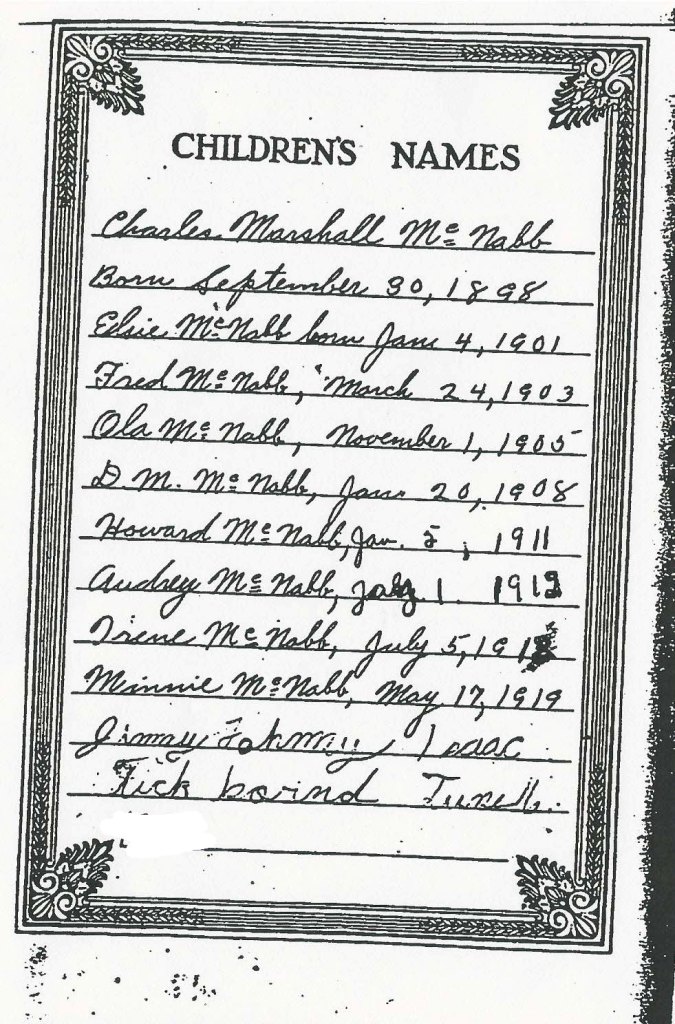 CHILDREN'S NAMES
Charles Marshall Mc Nabb
Born September 30, 1898
Elsie Mc Nabb born Jan 4, 1901
Fred Mc Nabb, " March 24, 1903
Ola Mc Nabb, November 1, 1905
D. M. Mc Nabb, Jan 20, 1908
Howard Mc Nabb, Jan. 5, 1911
Audrey Mc Nabb, 1
Irene Mc Nabb, July 5,
Minnie Mc Nabb, May 17, 1919
Jimmy Isaac